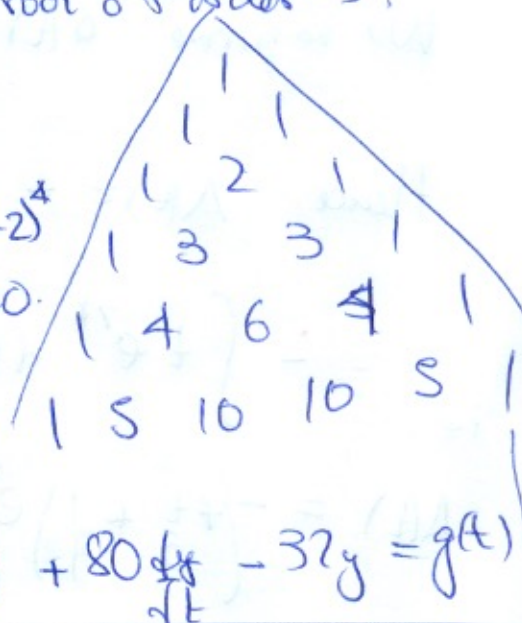 root of
1
1 1
1 2 1
-2)^4
1 3 3 1
0.
1 4 6 4 1
1 5 10 10 5 1
+ 80 dy/dt - 32y = g(t)